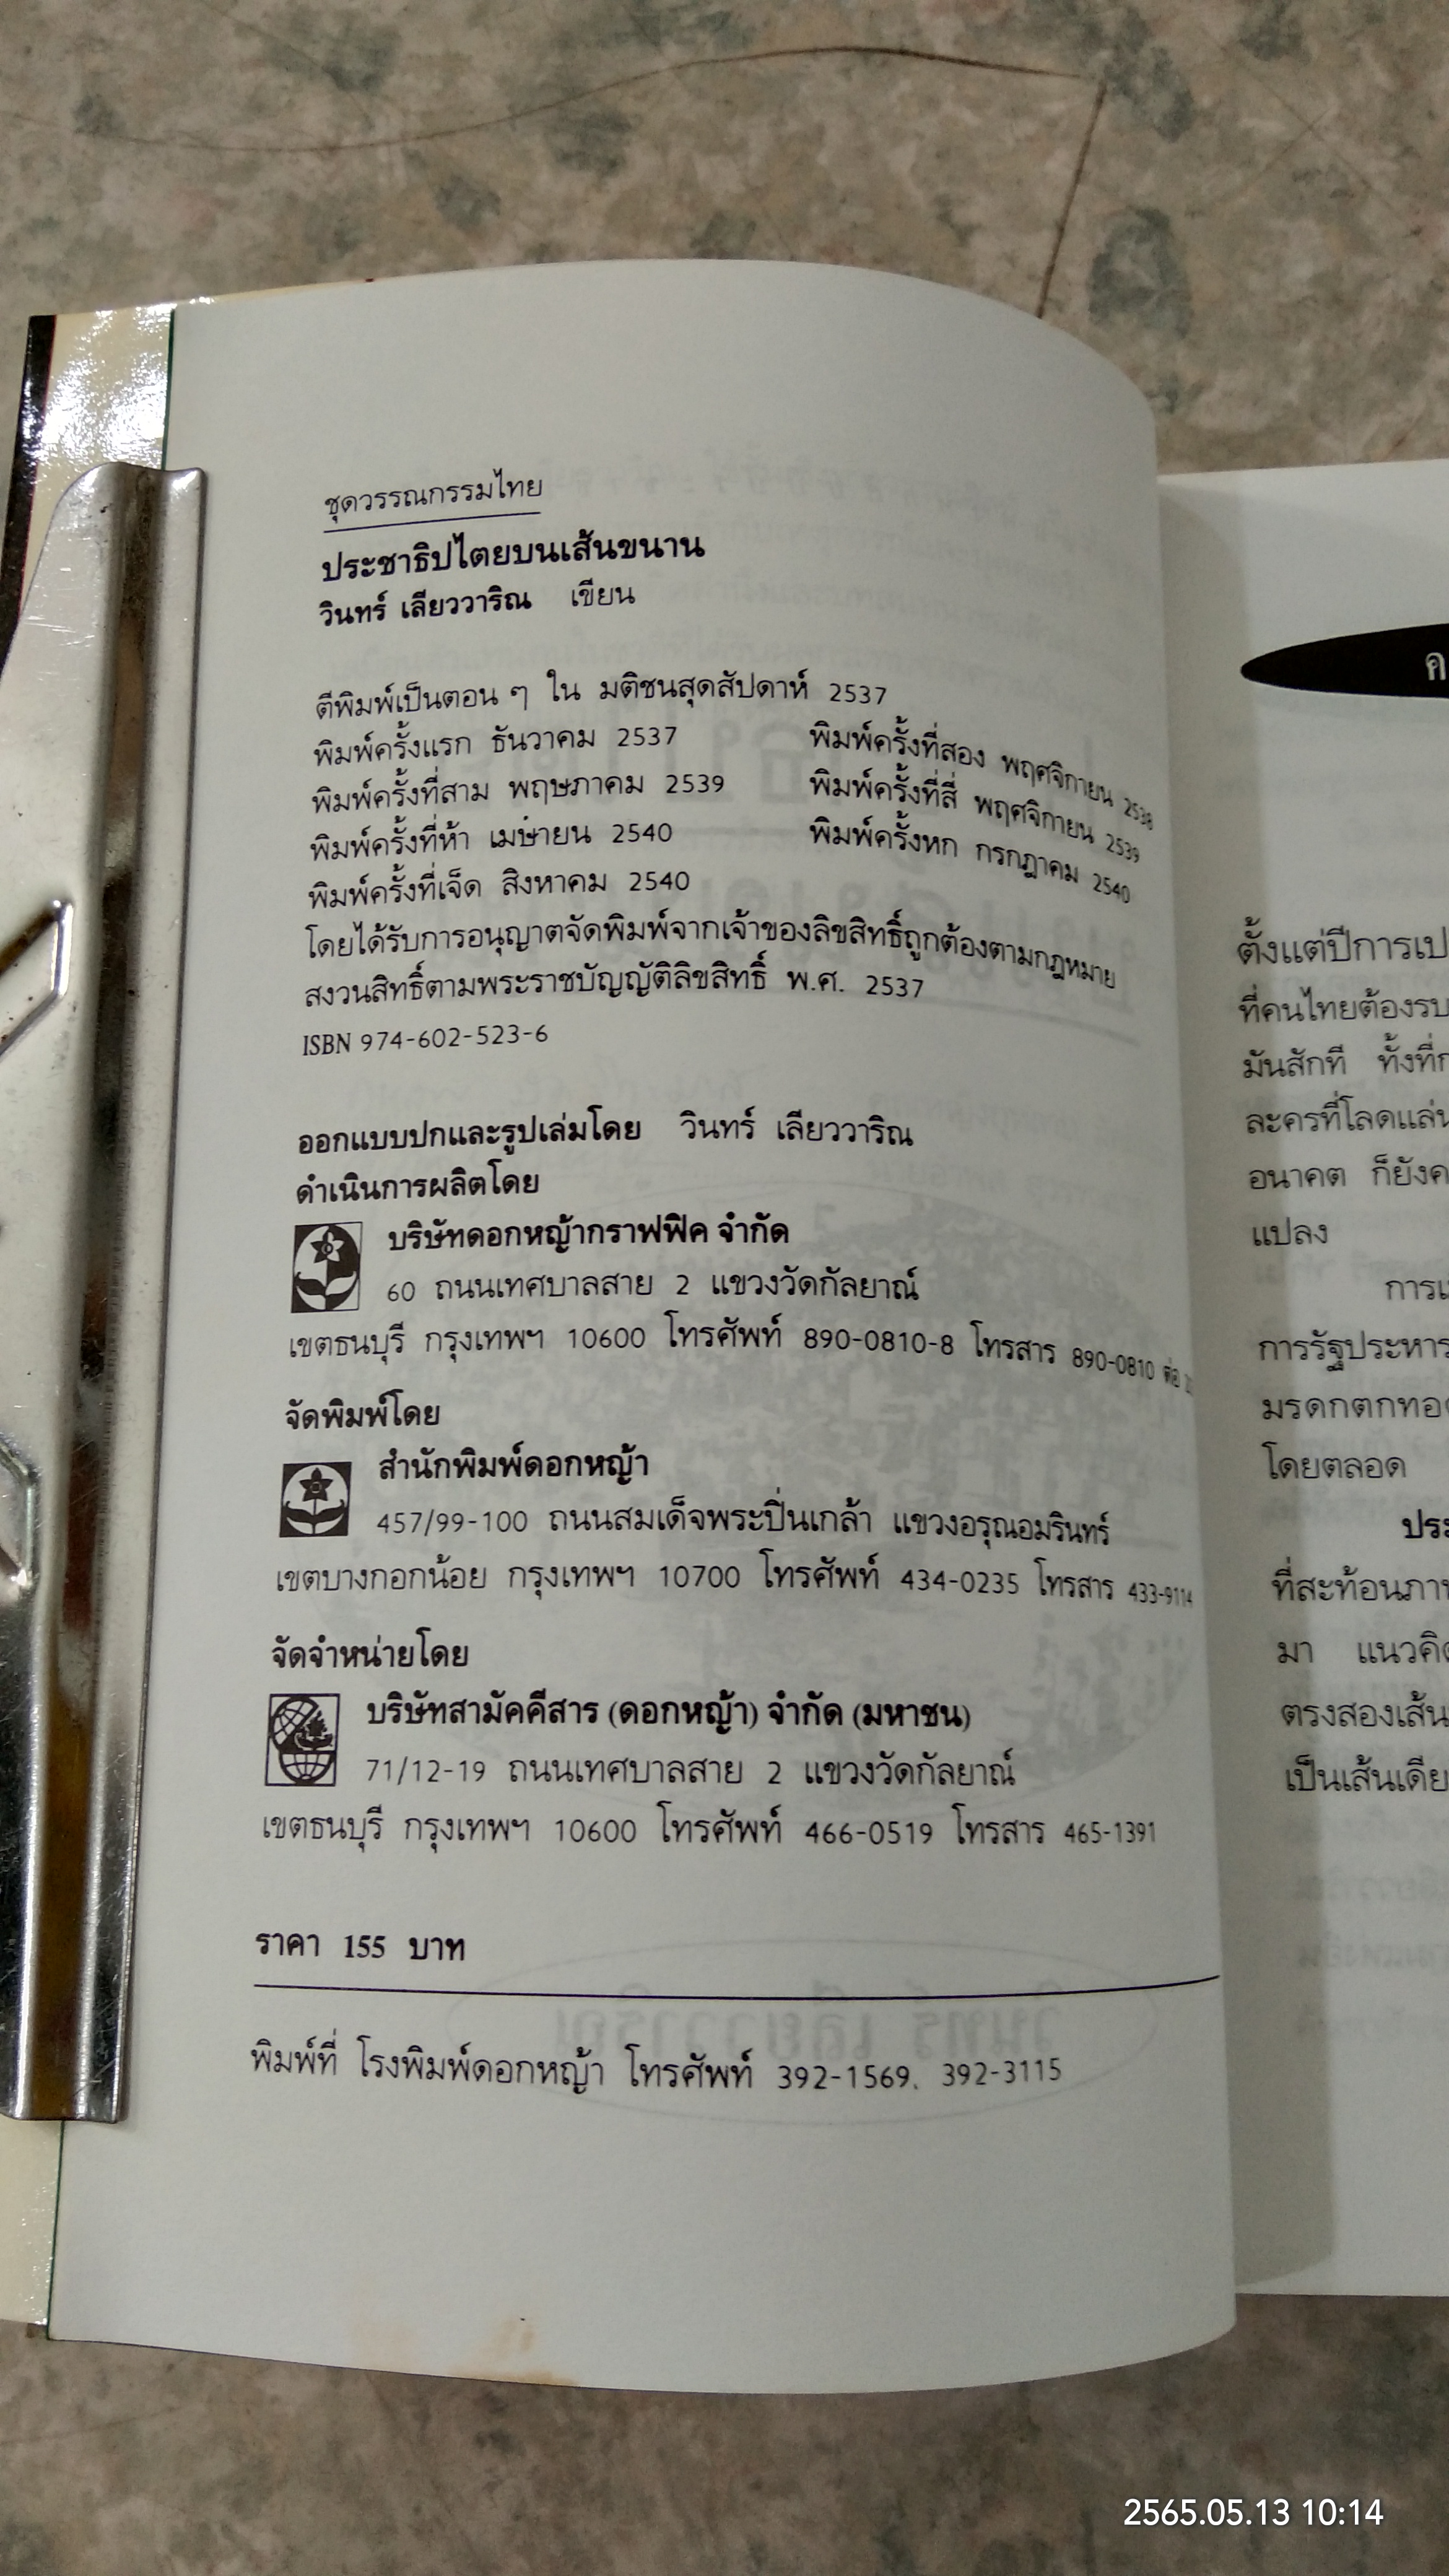 ชุดวรรณกรรมไทย
ประชาธิปไตยบนเส้นขนาน
วินทร์ เลียววาริณ เขียน
ตีพิมพ์เป็นตอน ๆ ใน มติชนสุดสัปดาห์ 2537
พิมพ์ครั้งแรก ธันวาคม 2537 พิมพ์ครั้งที่สอง พฤศจิกายน 2538
พิมพ์ครั้งที่สาม พฤษภาคม 2539 พิมพ์ครั้งที่สี่ พฤศจิกายน 2539
พิมพ์ครั้งที่ห้า เมษายน 2540 พิมพ์ครั้งหก กรกฎาคม 2540
พิมพ์ครั้งที่เจ็ด สิงหาคม 2540
โดยได้รับการอนุญาตจัดพิมพ์จากเจ้าของลิขสิทธิ์ถูกต้องตามกฎหมาย
สงวนสิทธิ์ตามพระราชบัญญัติลิขสิทธิ์ พ.ศ. 2537
ISBN 974-602-523-6
ออกแบบปกและรูปเล่มโดย วินทร์ เลียววาริณ
ดำเนินการผลิตโดย
บริษัทดอกหญ้ากราฟฟิค จำกัด
60 ถนนเทศบาลสาย 2 แขวงวัดกัลยาณ์
เขตธนบุรี กรุงเทพฯ 10600 โทรศัพท์ 890-0810-8 โทรสาร 890-0810 ต่อ
จัดพิมพ์โดย
สำนักพิมพ์ดอกหญ้า
457/99-100 ถนนสมเด็จพระปิ่นเกล้า แขวงอรุณอมรินทร์
เขตบางกอกน้อย กรุงเทพฯ 10700 โทรศัพท์ 434-0235 โทรสาร 433-9114
จัดจำหน่ายโดย
บริษัทสามัคคีสาร (ดอกหญ้า) จำกัด (มหาชน)
71/12-19 ถนนเทศบาลสาย 2 แขวงวัดกัลยาณ์
เขตธนบุรี กรุงเทพฯ 10600 โทรศัพท์ 466-0519 โทรสาร 465-1391
ราคา 155 บาท
พิมพ์ที่ โรงพิมพ์ดอกหญ้า โทรศัพท์ 392-1569, 392-3115
ค
ตั้งแต่ปีการเป
ที่คนไทยต้องรบ
มันสักที ทั้งที่ก
ละครที่โลดแล่น
อนาคต ก็ยังค
แปลง
การเ
การรัฐประหาร
มรดกตกทอด
โดยตลอด
ประ
ที่สะท้อนภา
มา แนวคิด
ตรงสองเส้น
เป็นเส้นเดีย
2565.05.13 10:14